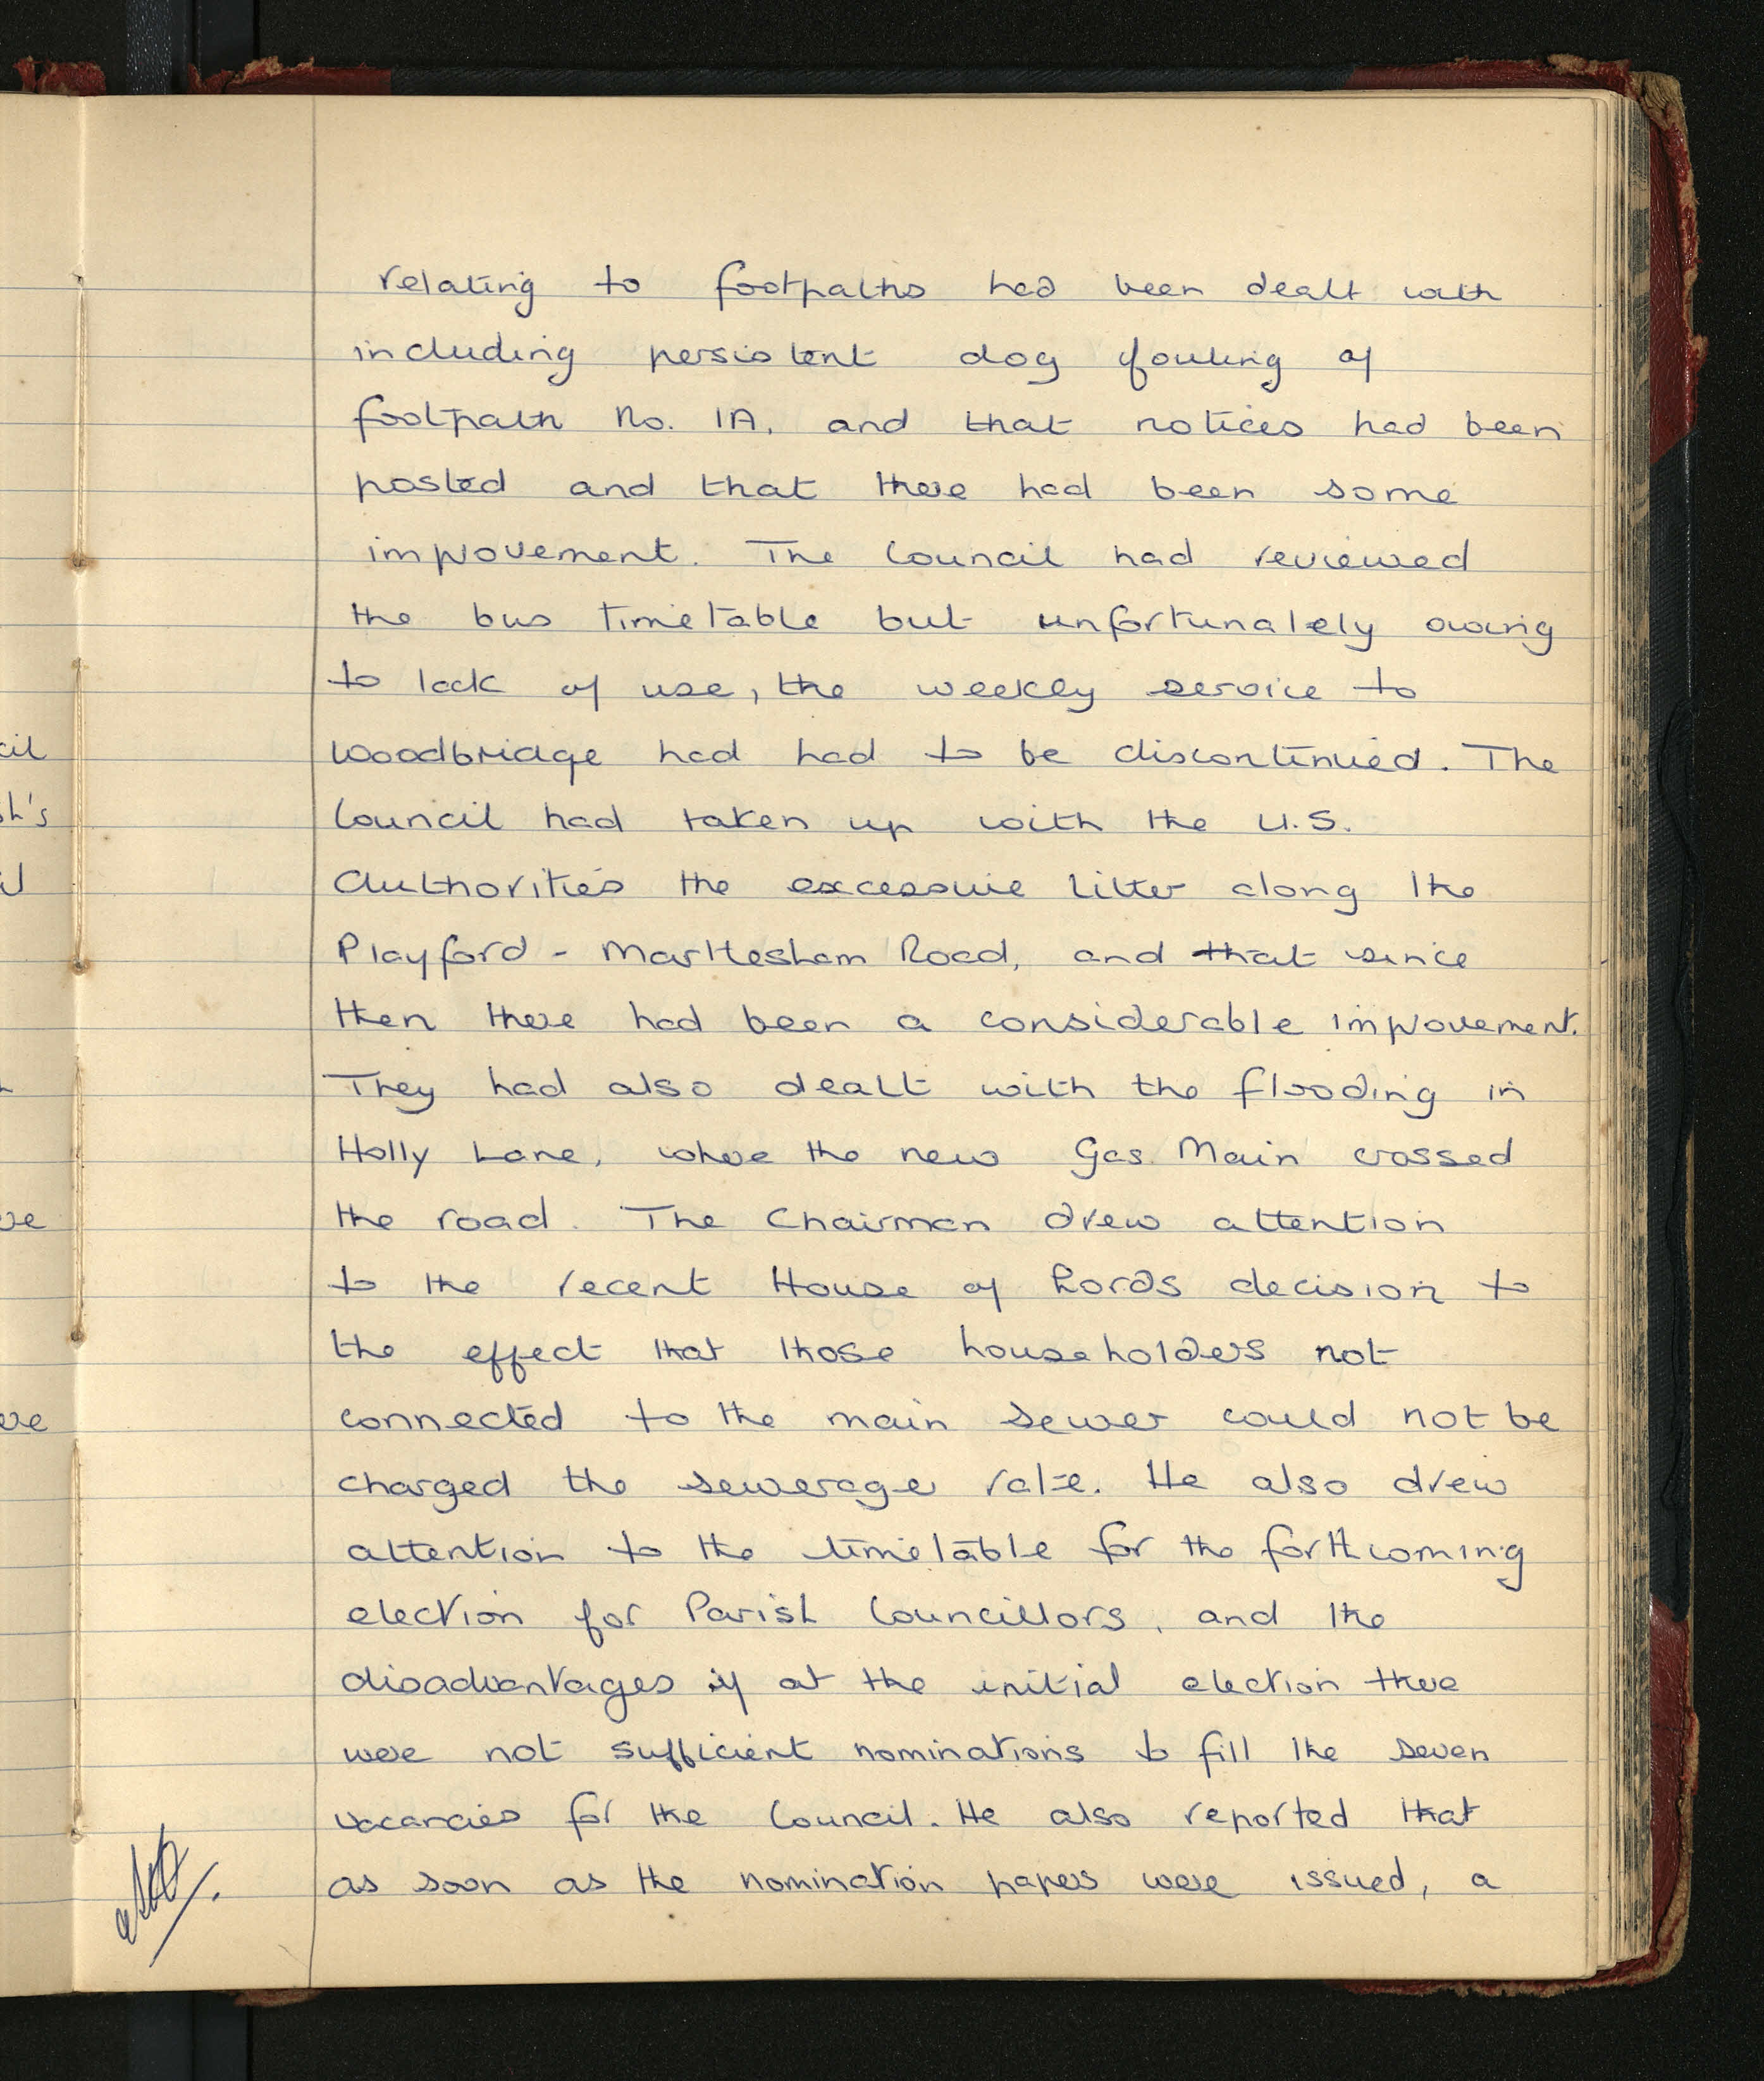 relating to footpaths had been dealt with
including persistent dog fouling of
footpath No. 1A, and that notices had been
posted and that there had been some
improvement. The Council had reviewed
the bus timetable but unfortunately owing
to lack of use, the weekly service to
Woodbridge had had to be discontinued. The
Council had taken up with the U.S.
Authorities the excessive litter along the
Playford - Martlesham Road, and that since
then there had been a considerable improvement.
They had also dealt with the flooding in
Holly Lane, where the new Gas Main crossed
the road. The Chairman drew attention
to the recent House of Lords decision to
the effect that those householders not
connected to the main sewer could not be
charged the sewerage rate. He also drew
attention to the timetable for the forthcoming
election for Parish Councillors, and the
disadvantages if at the initial election there
were not sufficient nominations to fill the seven
vacancies for the Council. He also reported that
as soon as the nomination papers were issued, a